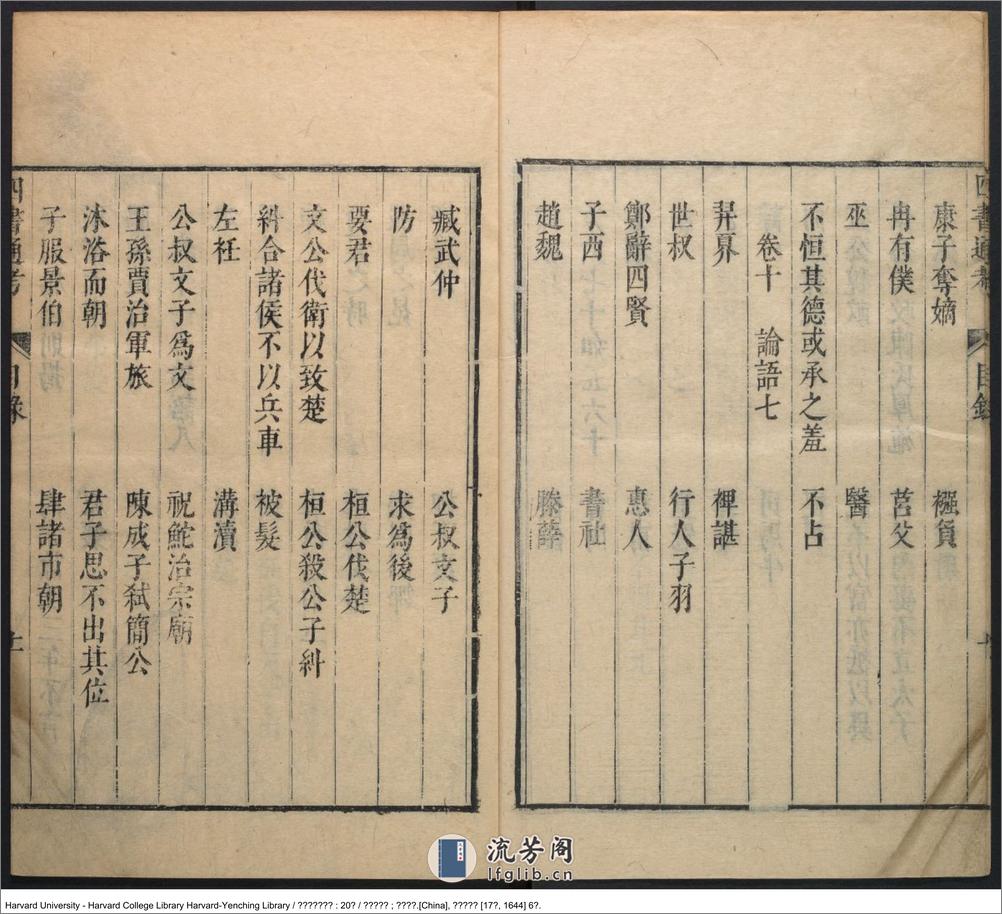 四書通考 目錄
康子奪嫡 襁負
冉有僕 莒父
巫 醫
不恒其德或承之羞 不占
卷十 論語七
羿奡 裨諶
世叔 行人子羽
鄭辭四賢 惠人
子西 書社
趙魏 滕薛
臧武仲 公叔文子
防 求為後
要君 桓公伐楚
文公伐衛以致楚 桓公殺公子糾
糾合諸侯不以兵車 被髮
左衽 溝瀆
公叔文子為文 祝鮀治宗廟
王孫賈治軍旅 陳成子弒簡公
沐浴而朝 君子思不出其位
子服景伯 肆諸市朝
四書通考 目錄
流芳阁
lfglib.cn
Harvard University - Harvard College Library Harvard-Yenching Library / ??????? : 20? / ????? ; ????.[China], ????? [17?, 1644] 6?.